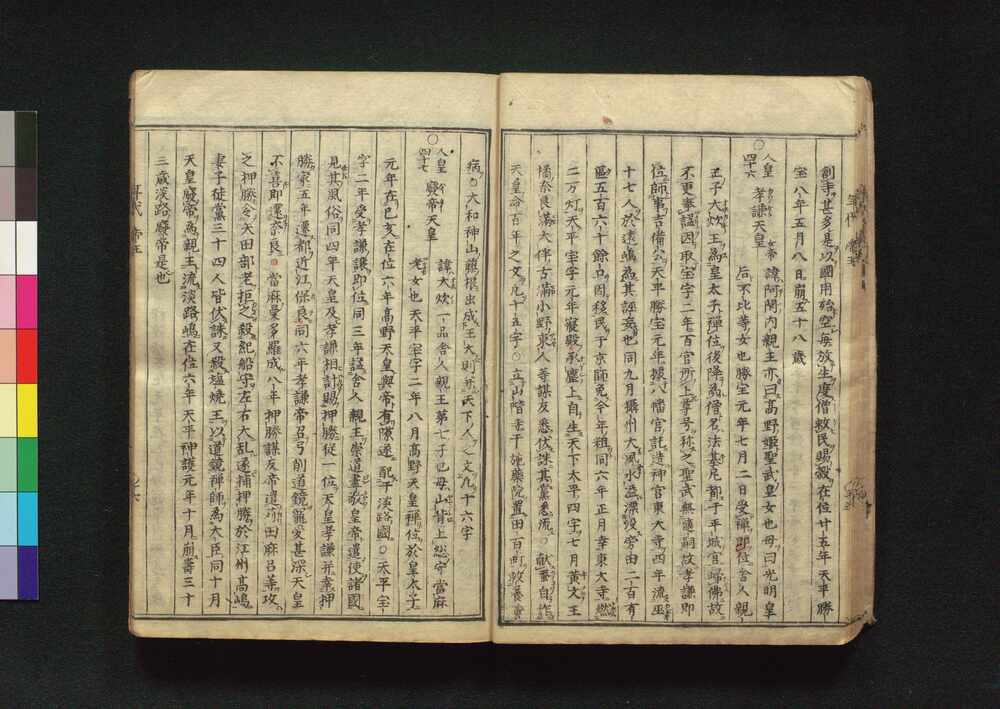 創寺甚多是以國用始空每放生度僧救民賜穀在位廿五年天平勝
宝八年五月八日崩五十八歳
人皇
四十六
孝謙天皇
女帝 諱阿閇内親王亦曰高野姫聖武皇女也母曰光明皇
后不比等女也勝宝元年七月二日受禅即位舎人親
王子大炊王為皇太子禅位後降為僧名法基尼都于平城官帰佛故
不更奉謚因取宝字二年百官所上尊号称之聖武無適嗣故孝謙即
位師事吉備公天平勝宝元年據八幡官託造神官東大寺四年流巫
十七人於遠嶋為其誣妄也同九月攝州大風水溢漂没旁田二百有
區五百六十餘口因移民于京師免今年租同六年正月幸東大寺燃
二万灯天平宝字元年寝殿承塵上自生天下太平四字七月黄文王
橘奈良麻大伴古満小野東人等謀反悉伏誅其黨悉流○献蚕自作
天皇命百年之文凡十五字○立山階寺于施藥院置田百町救養貧
病○大和神山藤根出成王大則并天下人文凡十六字
○人皇
四十七
廢帝天皇
諱大炊一品舎人親王第七子也母山背上総守當麻
老女也天平宝字二年八月高野天皇禅位於皇太子
元年在己亥在位六年高野天皇與帝有隙遂配于淡路國○天平宝
字二年受孝謙讓即位同三年謚舎人親王崇道盡敬皇帝遣使諸國
見其風俗同四年天皇及孝謙相討賜押勝従一位天皇孝謙并幸押
勝家五年遷都近江保良同六年孝謙帝召弓削道鏡寵愛甚深天皇
不喜即還奈良○當麻曼多羅成八年押勝謀反帝遣苅田麻呂等攻
之押勝令矢田部老拒之殺紀船守左右大乱遂捕押勝於江州高嶋
妻子徒黨三十四人皆伏誅又殺塩焼王以道鏡禅師為大臣同十月
天皇廢帝為親王流淡路嶋在位六年天平神護元年十月崩壽三十
三歳淡路廢帝是也